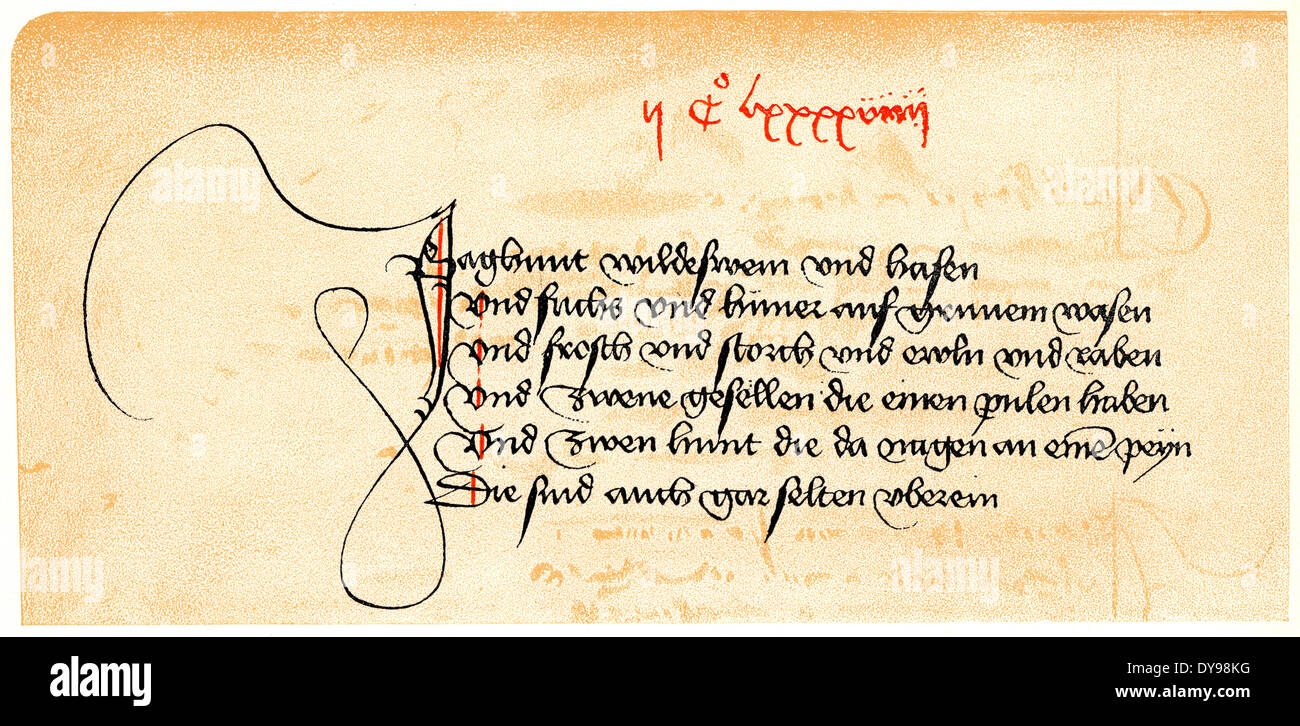 ij C° lxxxxviiij
Jaghunt wildeswein vnd hasen
vnd fuchs vnd hüner auf grunem wasen
vnd frosch vnd storch vnd ewln vnd raben
vnd zwene gesellen die einen pulen haben
Vnd zwen hunt die da nagen an einē peyn
Die sind auch gar selten vberein
alamy
Image ID: DY98KG
www.alamy.com